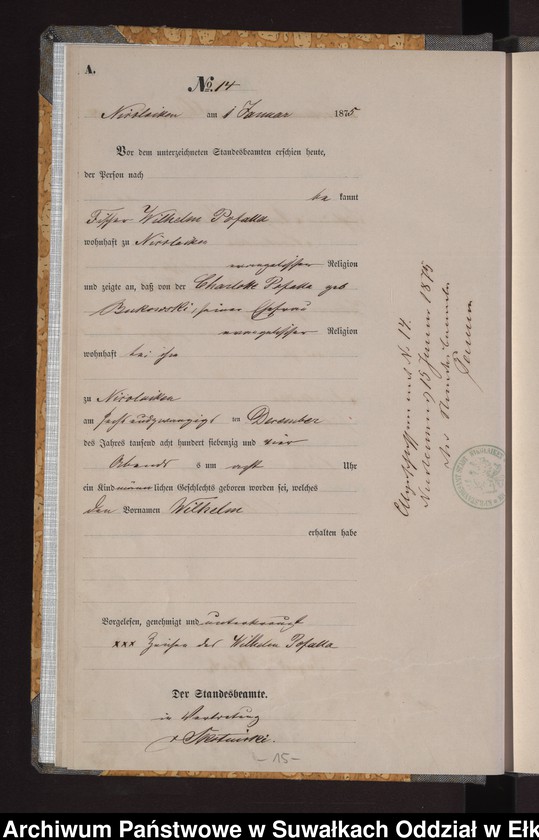 A.
No. 14
Nicolaiken am 1 Januar 1875
Vor dem unterzeichneten Standesbeamten erschien heute,
der Person nach
be kannt
Fischer Wilhelm Pofalla
wohnhaft zu Nicolaiken
evangelischer Religion
und zeigte an, daß von der Charlotte Pofalla geb
Bukowski, seiner Ehefrau
evangelischer Religion
wohnhaft bei ihm
zu Nicolaiken
am sechs und zwanzigs ten December
des Jahres tausend acht hundert siebenzig und vier
Abends s um acht Uhr
ein Kind männlichen Geschlechts geboren worden sei, welches
den Vornamen Wilhelm
erhalten habe
Vorgelesen, genehmigt und unterkreuzt
xxx Zeichen des Wilhelm Pofalla
Der Standesbeamte.
in Vertretung
-15-
Abgeschlossen mit N. 14.
15 Januar 1875
Der Standesbeamte
Archiwum Państwowe w Suwałkach Oddział w Ełk